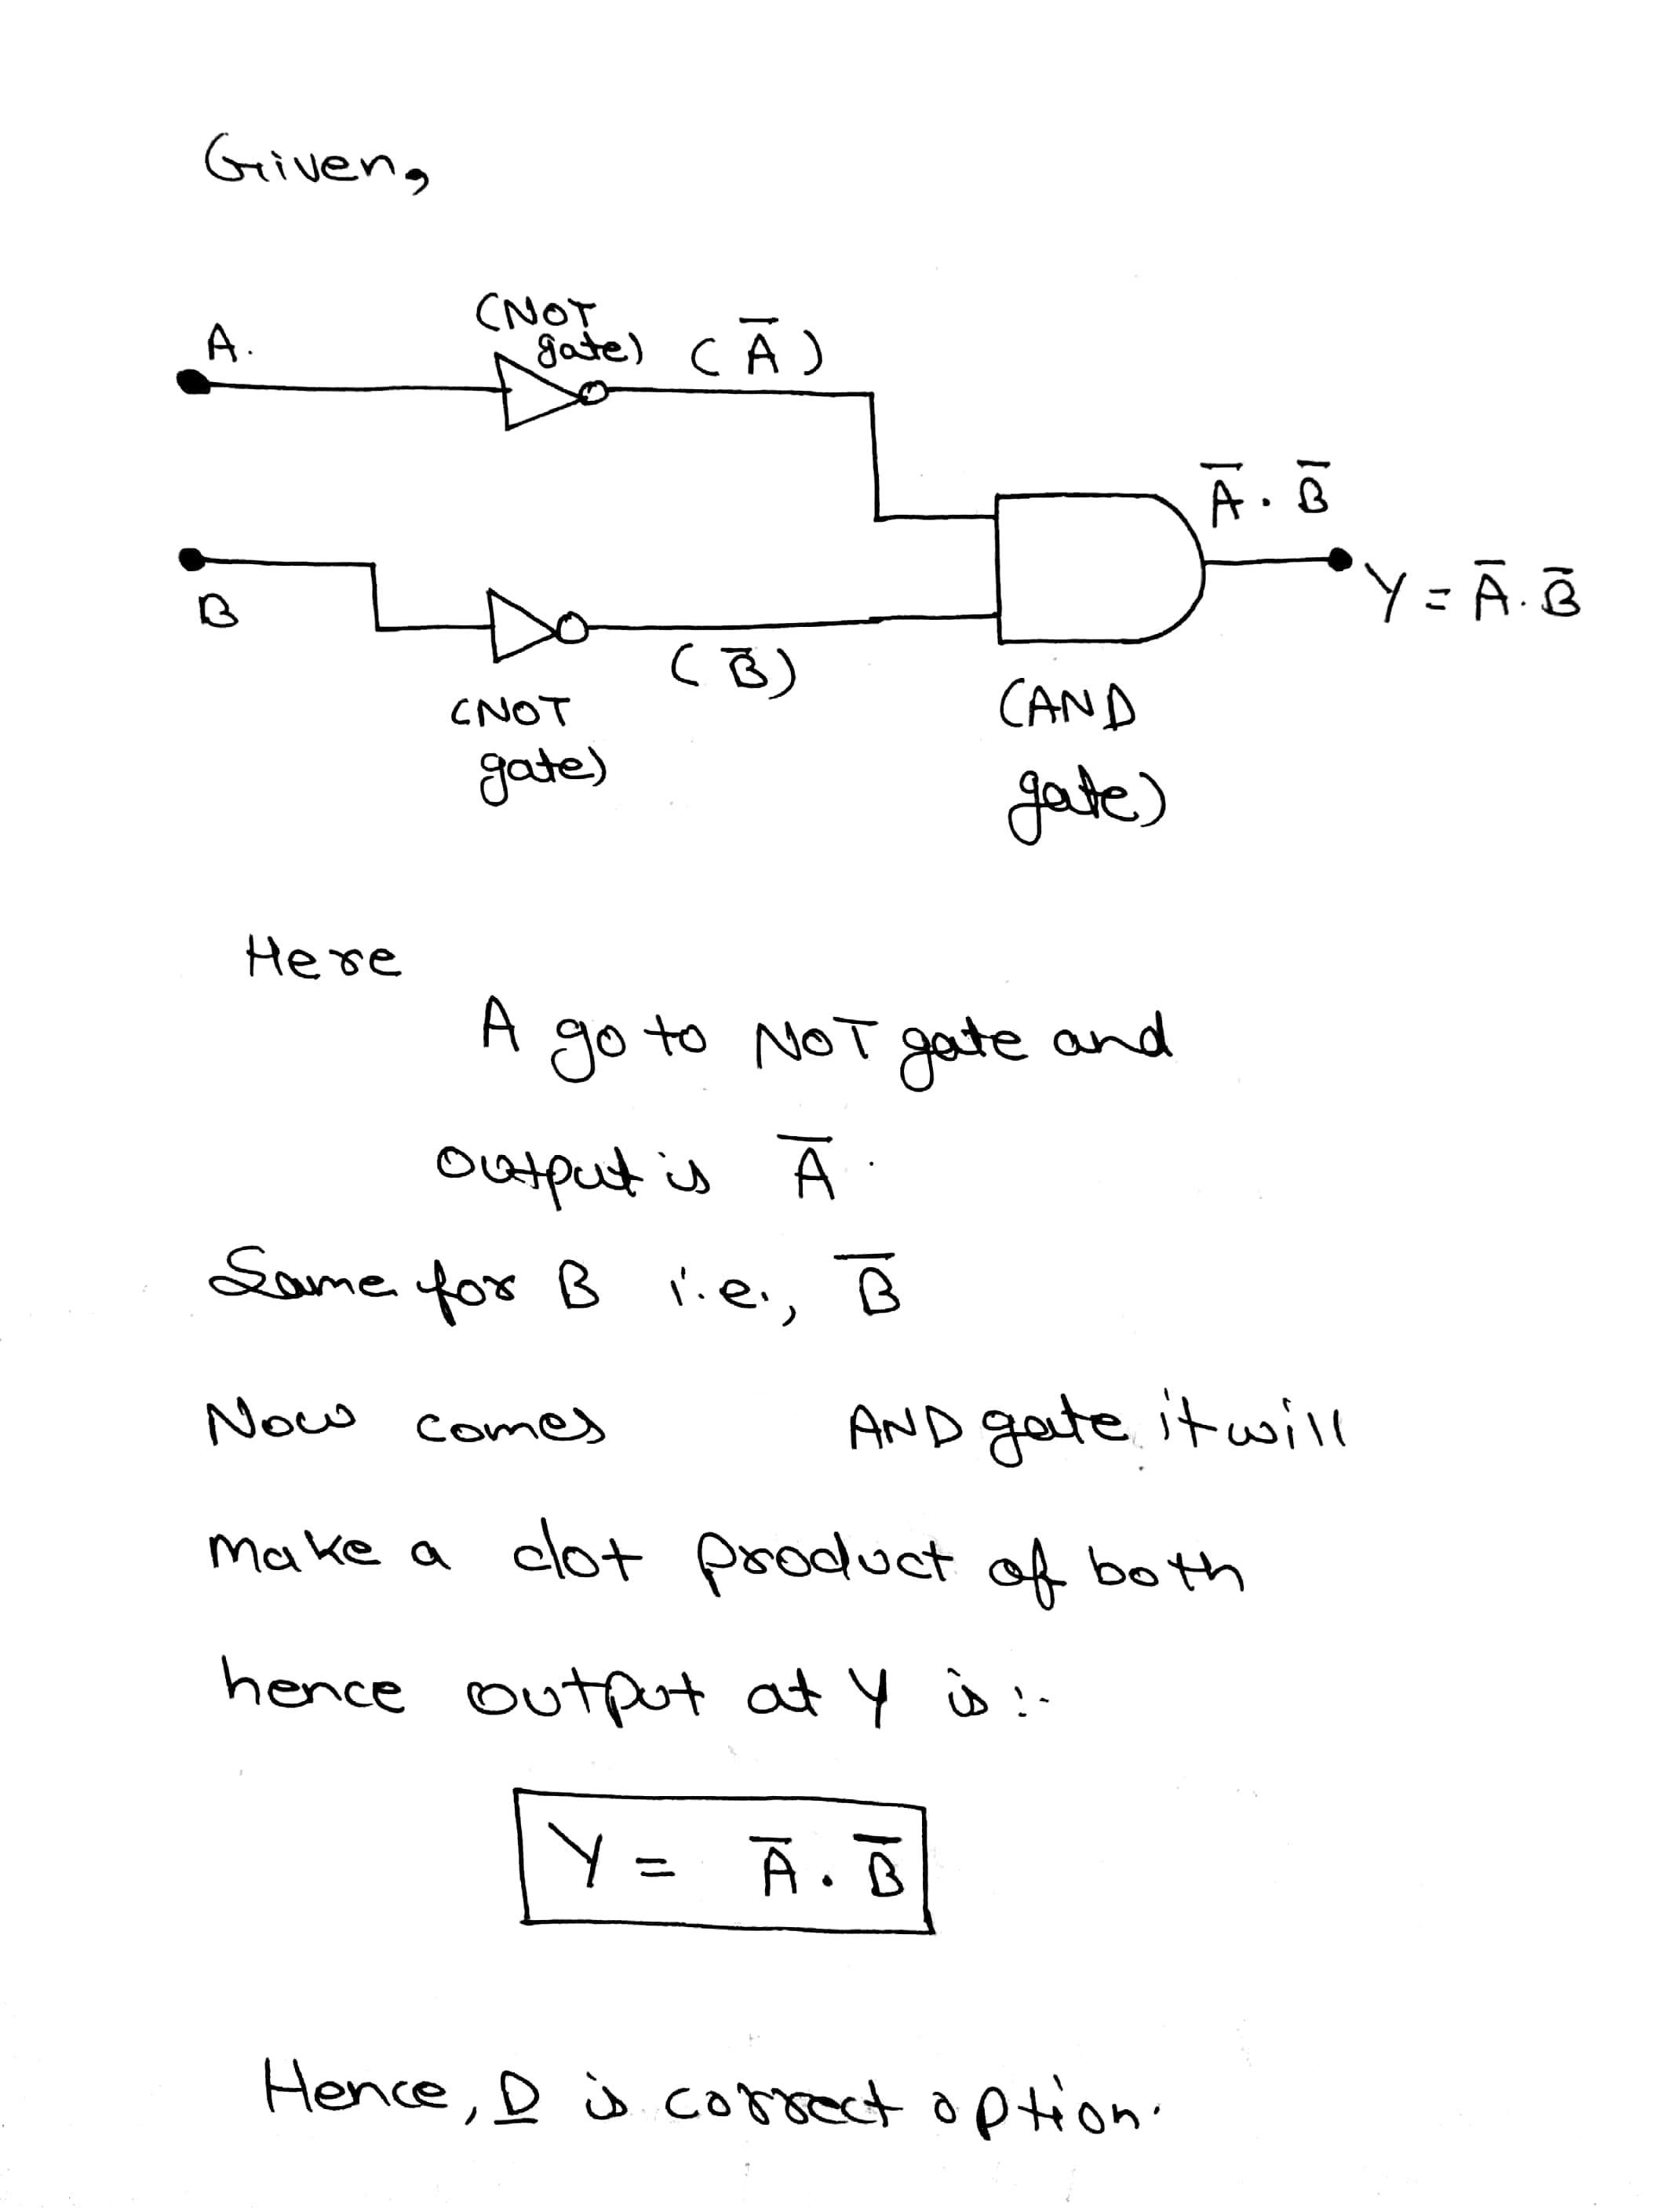 Given,
(NOT
gate) (Ā)
A.
Ā . B̄
Y = Ā . B̄
B
(B̄)
(NOT
gate)
(AND
gate)
Here
A go to NOT gate and
output is Ā .
Same for B i.e., B̄
Now comes AND gate it will
make a dot product of both
hence output at Y is :-
Y = Ā . B̄
Hence, D is correct option.